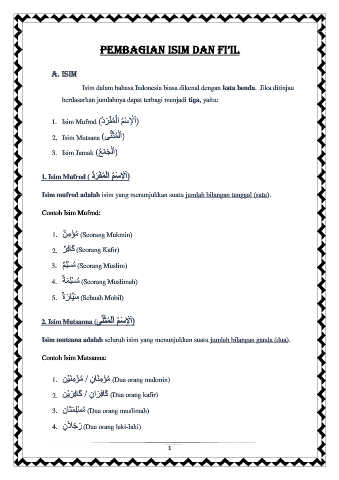 PEMBAGIAN ISIM DAN FI'IL
A. ISIM
Isim dalam bahasa Indonesia biasa dikenal dengan kata benda. Jika ditinjau
berdasarkan jumlahnya dapat terbagi menjadi tiga, yaitu:
1. Isim Mufrod (اَلْاِسْمُ الْمُفْرَدُ)
2. Isim Mutsana (الْمُثَنَّى)
3. Isim Jamak (اَلْجَمْعُ)
1. Isim Mufrod (اَلْاِسْمُ الْمُفْرَدُ)
Isim mufrod adalah isim yang menunjukkan suatu jumlah bilangan tunggal (satu).
Contoh Isim Mufrod:
1. مُؤْمِنٌ (Seorang Mukmin)
2. كَافِرٌ (Seorang Kafir)
3. مُسْلِمٌ (Seorang Muslim)
4. مُسْلِمَةٌ (Seorang Muslimah)
5. سَيَّارَةٌ (Sebuah Mobil)
2. Isim Mutsanna (اَلْاِسْمُ الْمُثَنَّى)
Isim mutsana adalah seluruh isim yang menunjukkan suatu jumlah bilangan ganda (dua).
Contoh Isim Mutsanna:
1. مُؤْمِنَانِ / مُؤْمِنَيْنِ (Dua orang mukmin)
2. كَافِرَانِ / كَافِرَيْنِ (Dua orang kafir)
3. مُسْلِمَتَانِ (Dua orang muslimah)
4. رَجُلَانِ (Dua orang laki-laki)
1